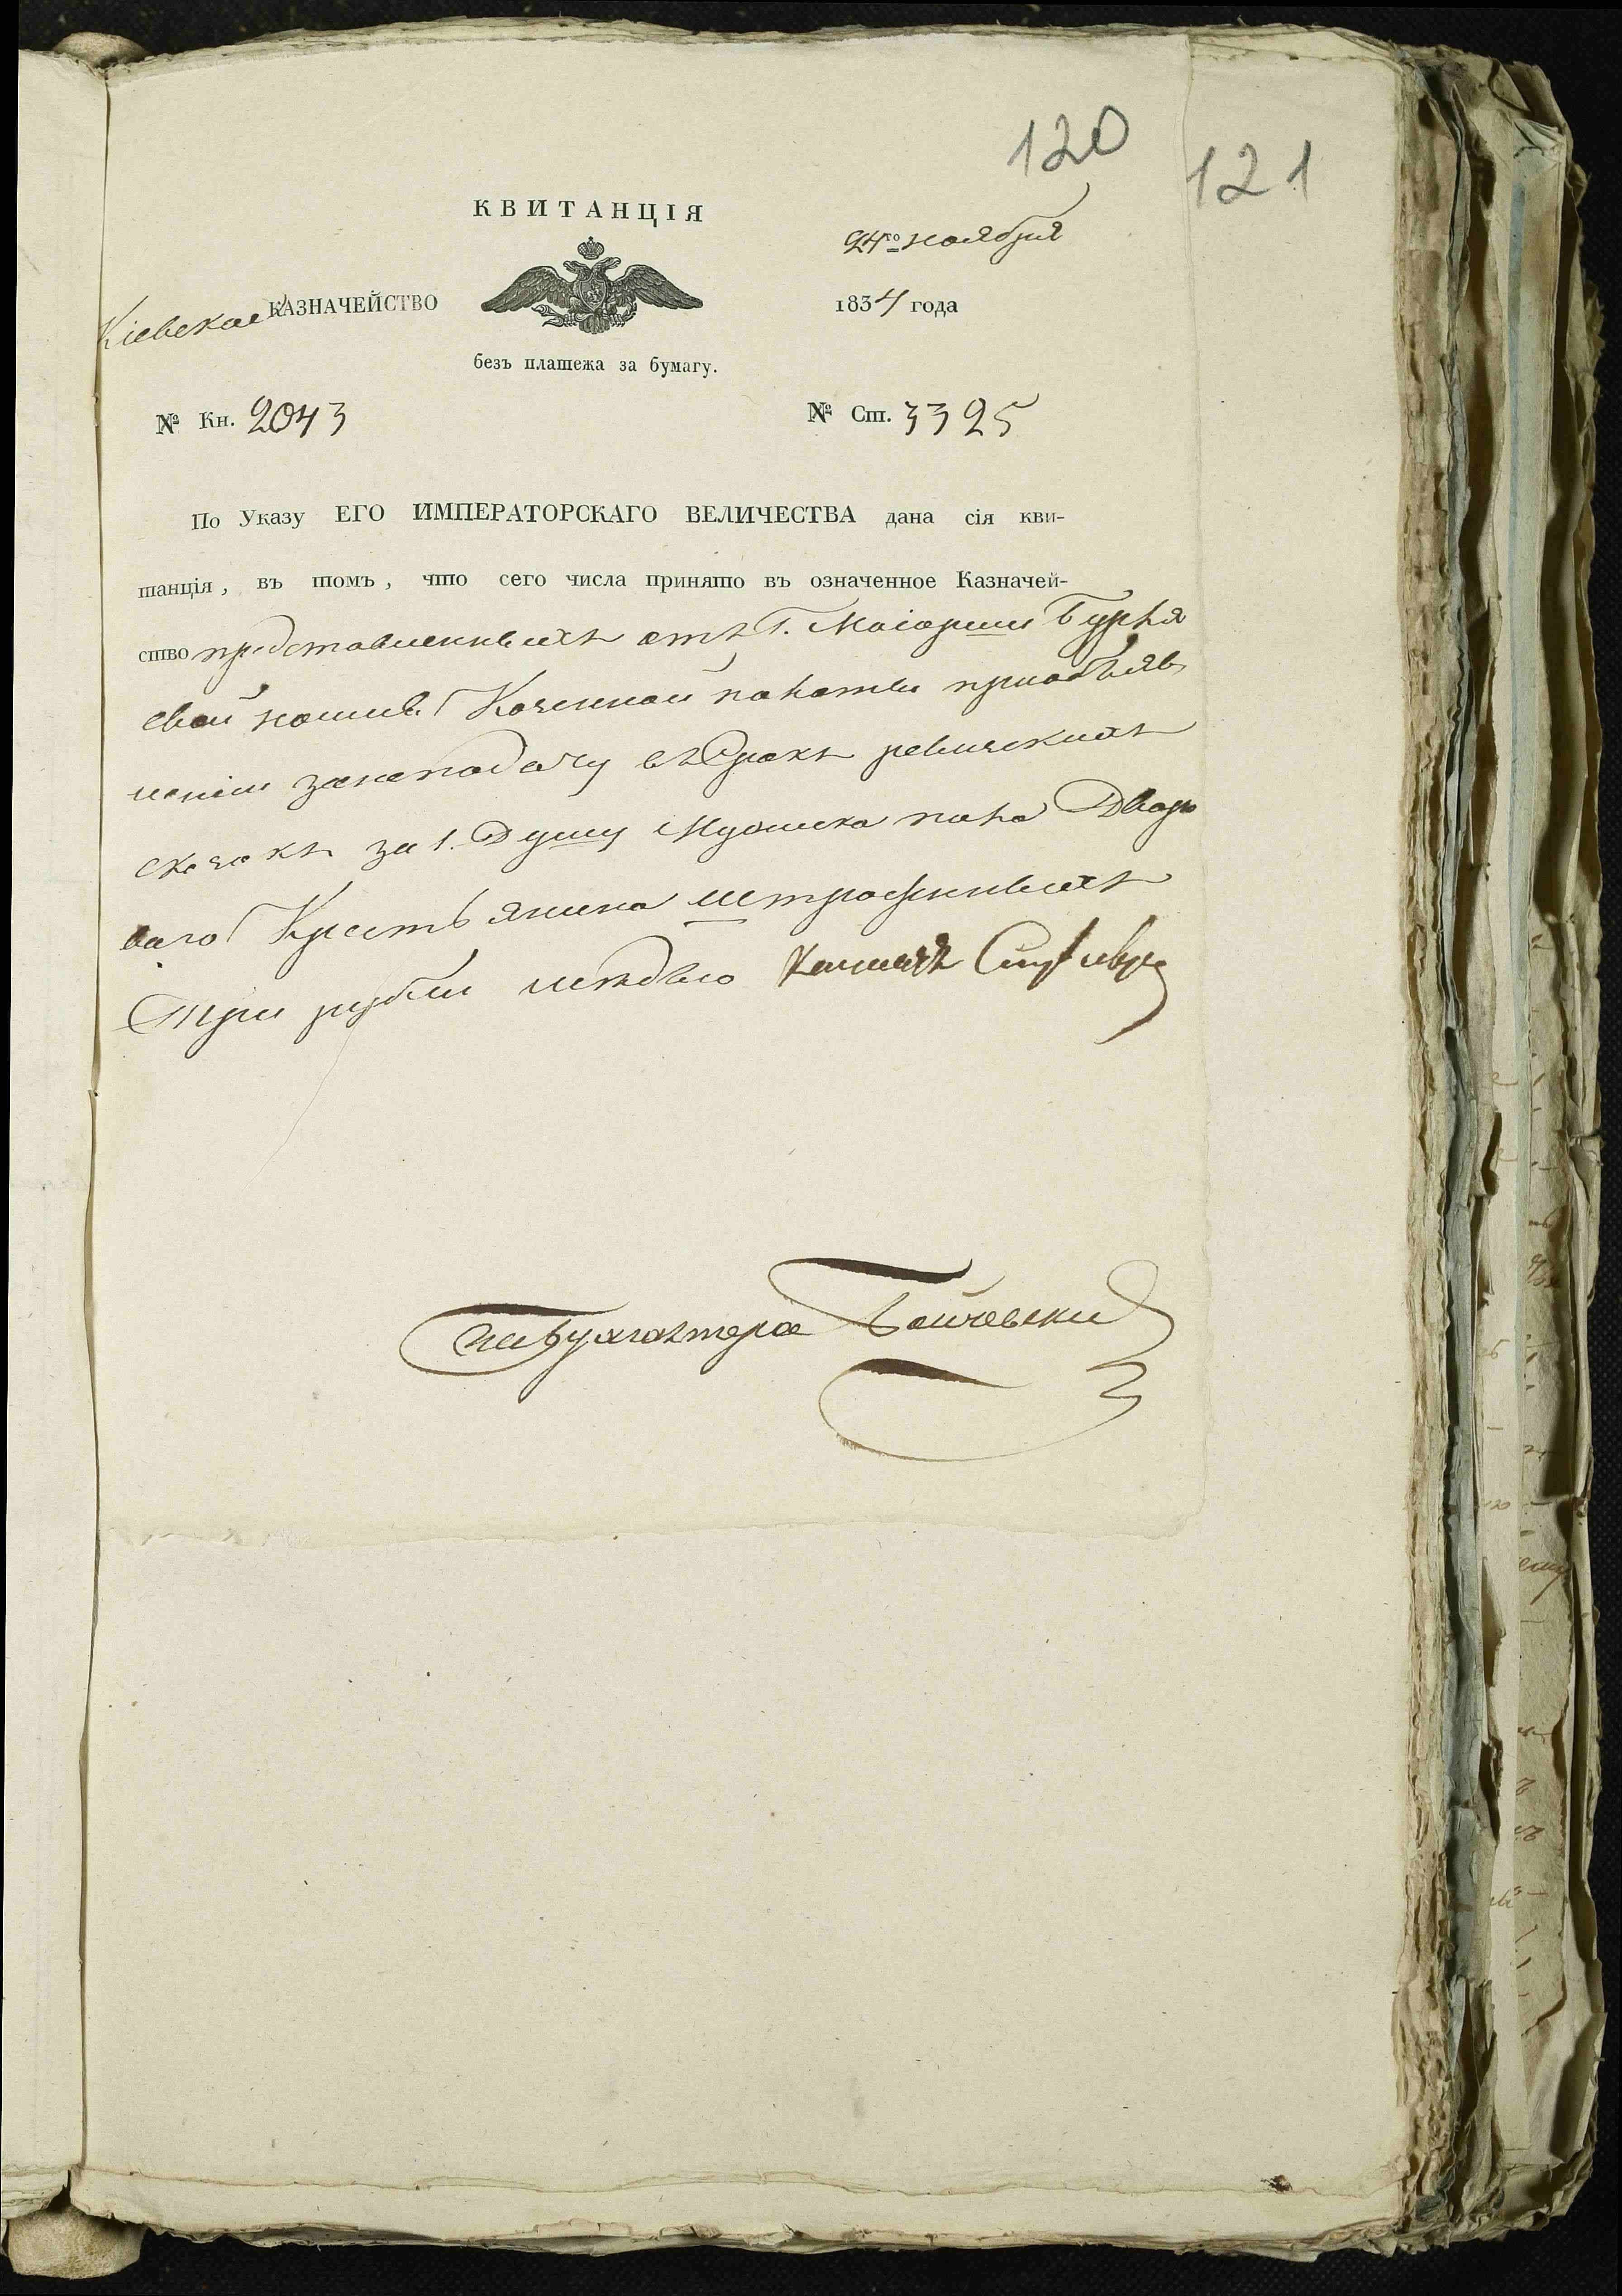 120
121
КВИТАНЦІЯ
24го ноября
Кіевское КАЗНАЧЕЙСТВО
1834 года
безъ платежа за бумагу.
№ Кн. 2043
№ Ст. 3325
По Указу ЕГО ИМПЕРАТОРСКАГО ВЕЛИЧЕСТВА дана сія кви-
танція, въ томъ, что сего числа принято въ означенное Казначей-
ство представленныхъ отъ Г. Маіорши
Казенной палаты приобъяв
леніи занеподачу въ Срокъ ревизскихъ
сказокъ за 1. Душу мужеска пола Дворо
ваго Крестьянина штрафныхъ
Три рубли медью
Бухгалтера